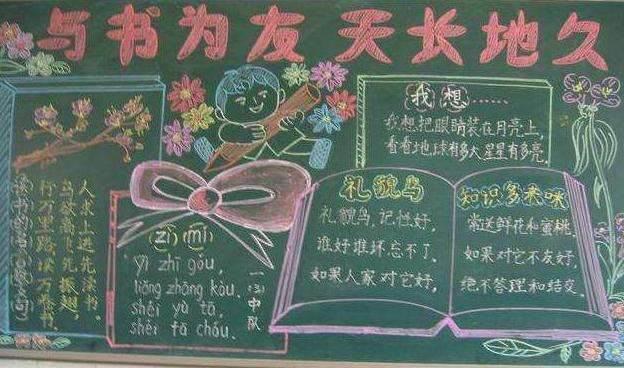 与书为友 天长地久
人求上进先读书。
鸟欲高飞先振翅,
行万里路,读万卷书.
zì mí
yì zhī gǒu,
liǎng zhāng kǒu.
shéi yù tā,
shéi fā chóu.
一(3)中队
我想……
我想把眼睛装在月亮上,
看看地球有多大星星有多亮.
礼貌鸟
礼貌鸟,记性好,
谁好谁坏忘不了.
如果人家对它好,
知识多来咪
常送鲜花和蜜桃,
如果对它不友好,
绝不答理和结交.